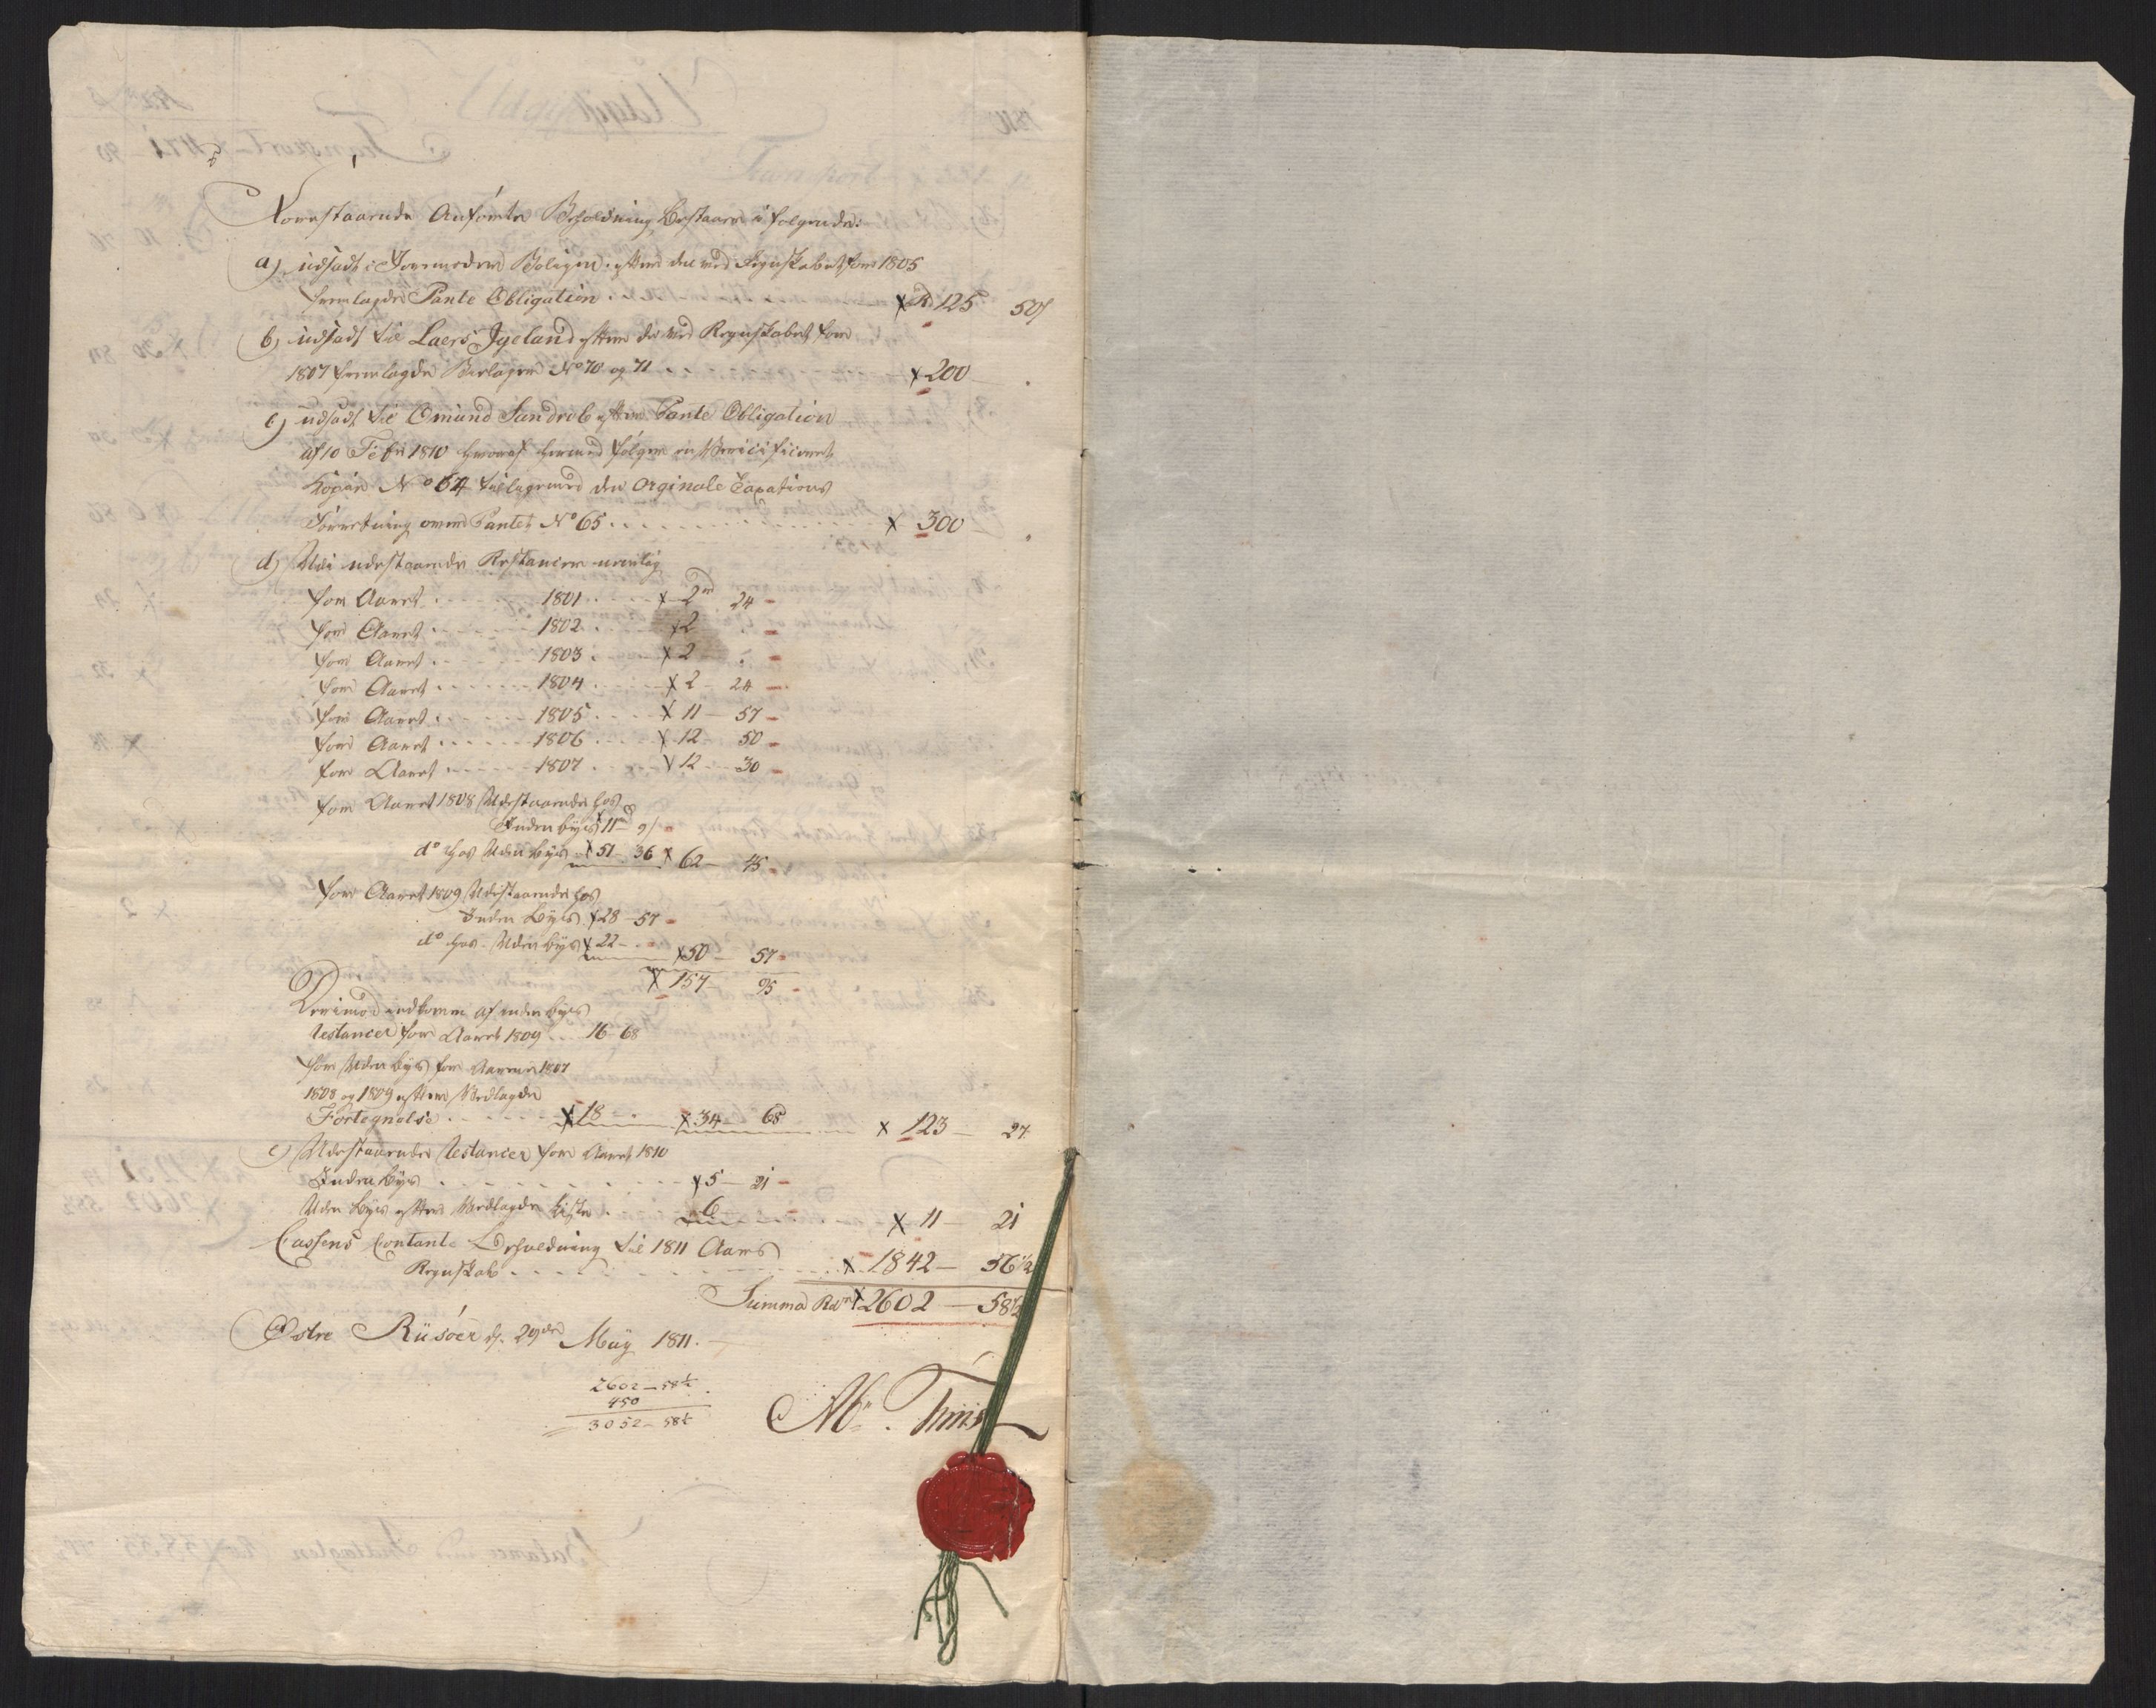 Foranstaaende Anførte Beholdning bestaaer i følgende:
a) udsadt i Jordmoder Boligen efter den ved Regnskabet for 1805
fremlagde Pante Obligation . . . Rd 125 50 ß
b) udsadt til Laers Igeland efter de ved Regnskabet for
1807 fremlagde Bielager No 70 og 71 . . 200
c) udsadt til Omund Sundrob efter Pante Obligation
af 10 Febr 1810 hvoraf hermed følger en Verificeret
Kopie No 64 tilligemed den Orginale Taxations
Forretning over Pantet No 65 . . . . 300
d) Udi udestaaende Restancer nemlig
for Aaret . . . 1801 . . . 2 rd 24
for Aaret . . . 1802 . . . 2
for Aaret . . . 1803 . . . 2
for Aaret . . . 1804 . . . 2 – 24
for Aaret . . . 1805 . . . 11 – 57
for Aaret . . . 1806 . . . 12 50
for Aaret . . . 1807 . . . 12 – 30
for Aaret 1808 Udestaaende hos
Inden byes 11 rd 9 ß
do hos Uden byes 51 – 36 62 – 45
for Aaret 1809 Udestaaende hos
Inden Byes 28 – 57
do hos Uden byes 22 – 50 – 57
157 95
Derimod indkomm af inden byes
Restancer for Aaret 1809 . . 16 68
for Uden Byes for Aarene 1807
1808 og 1809 efter Vedlagde
Fortegnelse . . . 18 – . 34 68 123 – 27
e) Udestaaende Restancer for Aaret 1810
Inden Byes . . . 5 – 21
Uden byes efter Vedlagde Liste . . . 6 11 – 21
Cassens Contante Beholdning til 1811 Aars
Regnskab . . . 1842 – 56 1/2
Summa Rdr 2602 – 58 1/2
Østre Riisøer d. 29de May 1811.
2602 – 58 1/2
450
3052 – 58 1/2